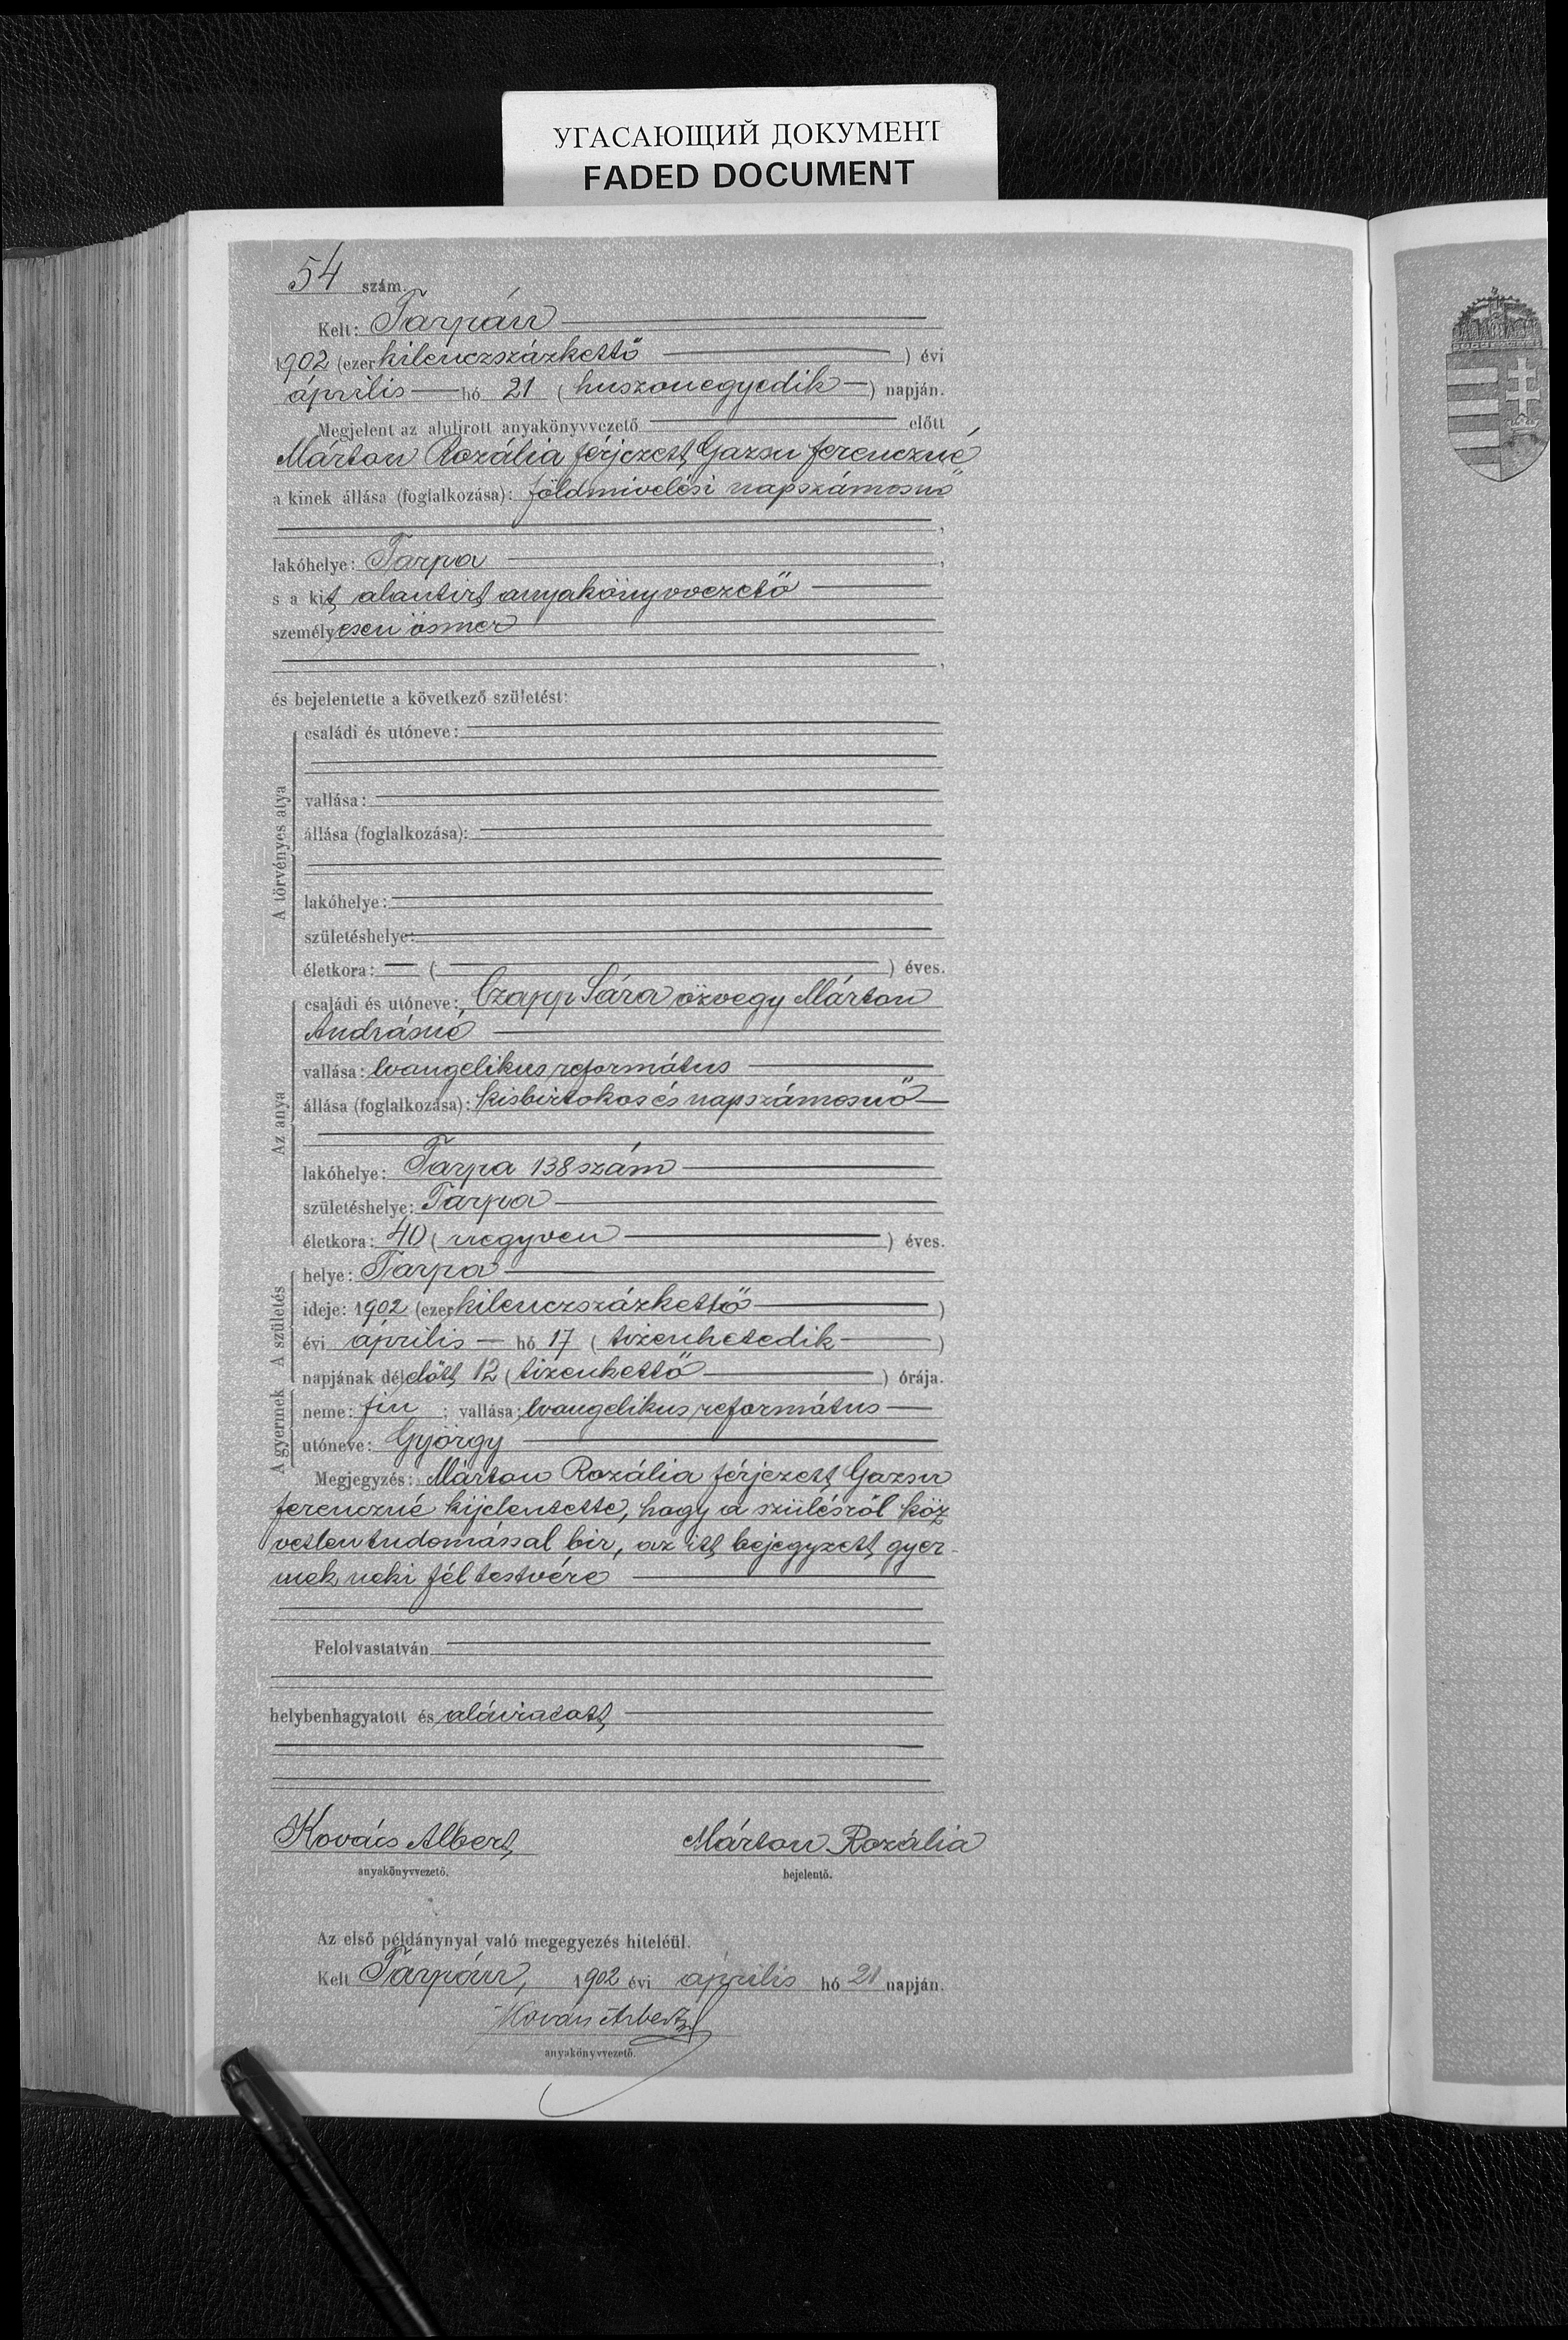 УГАСАЮЩИЙ ДОКУМЕНТ
FADED DOCUMENT
54 szám.
Kelt: Tarpán
1902 (ezerkilenczszázkettő ) évi
április hó 21 (huszonegyedik) napján.
Megjelent az alulirott anyakönyvvezető előtt
Márton Rozália férjezett Gazsu Ferenczné
a kinek állása (foglalkozása): földmivelési napszámosnő
,
lakóhelye: Tarpa ,
s a kit alantirt anyakönyvvezető
személyesen ösmer
,
és bejelentette a következő születést:
A törvényes atya
családi és utóneve:
vallása:
állása (foglalkozása):
lakóhelye:
születéshelye:
életkora: — ( ) éves.
Az anya
családi és utóneve: Czapp Sára özvegy Márton
Andrásné
vallása: Evangelikus református
állása (foglalkozása): kisbirtokos és napszámosnő
lakóhelye: Tarpa 138 szám
születéshelye: Tarpa
életkora: 40 (negyven ) éves.
A születés
helye: Tarpa
ideje: 1902 (ezerkilenczszázkettő )
évi április hó 17 (tizenhetedik )
napjának délelőtt 12 (tizenkettő ) órája.
A gyermek
neme: fiu ; vallása: Evangelikus református
utóneve: György
Megjegyzés: Márton Rozália férjezett Gazsu
Ferenczné kijelentette, hogy a szülésről köz
vetlen tudomással bir, az itt bejegyzett gyer-
mek neki féltestvére
Felolvastatván
helybenhagyatott és aláiratott
Kovács Albert Márton Rozália
anyakönyvvezető. bejelentő.
Az első példánynyal való megegyezés hiteléül.
Kelt Tarpán, 1902 évi április hó 21 napján.
Kovács Albert
anyakönyvvezető.